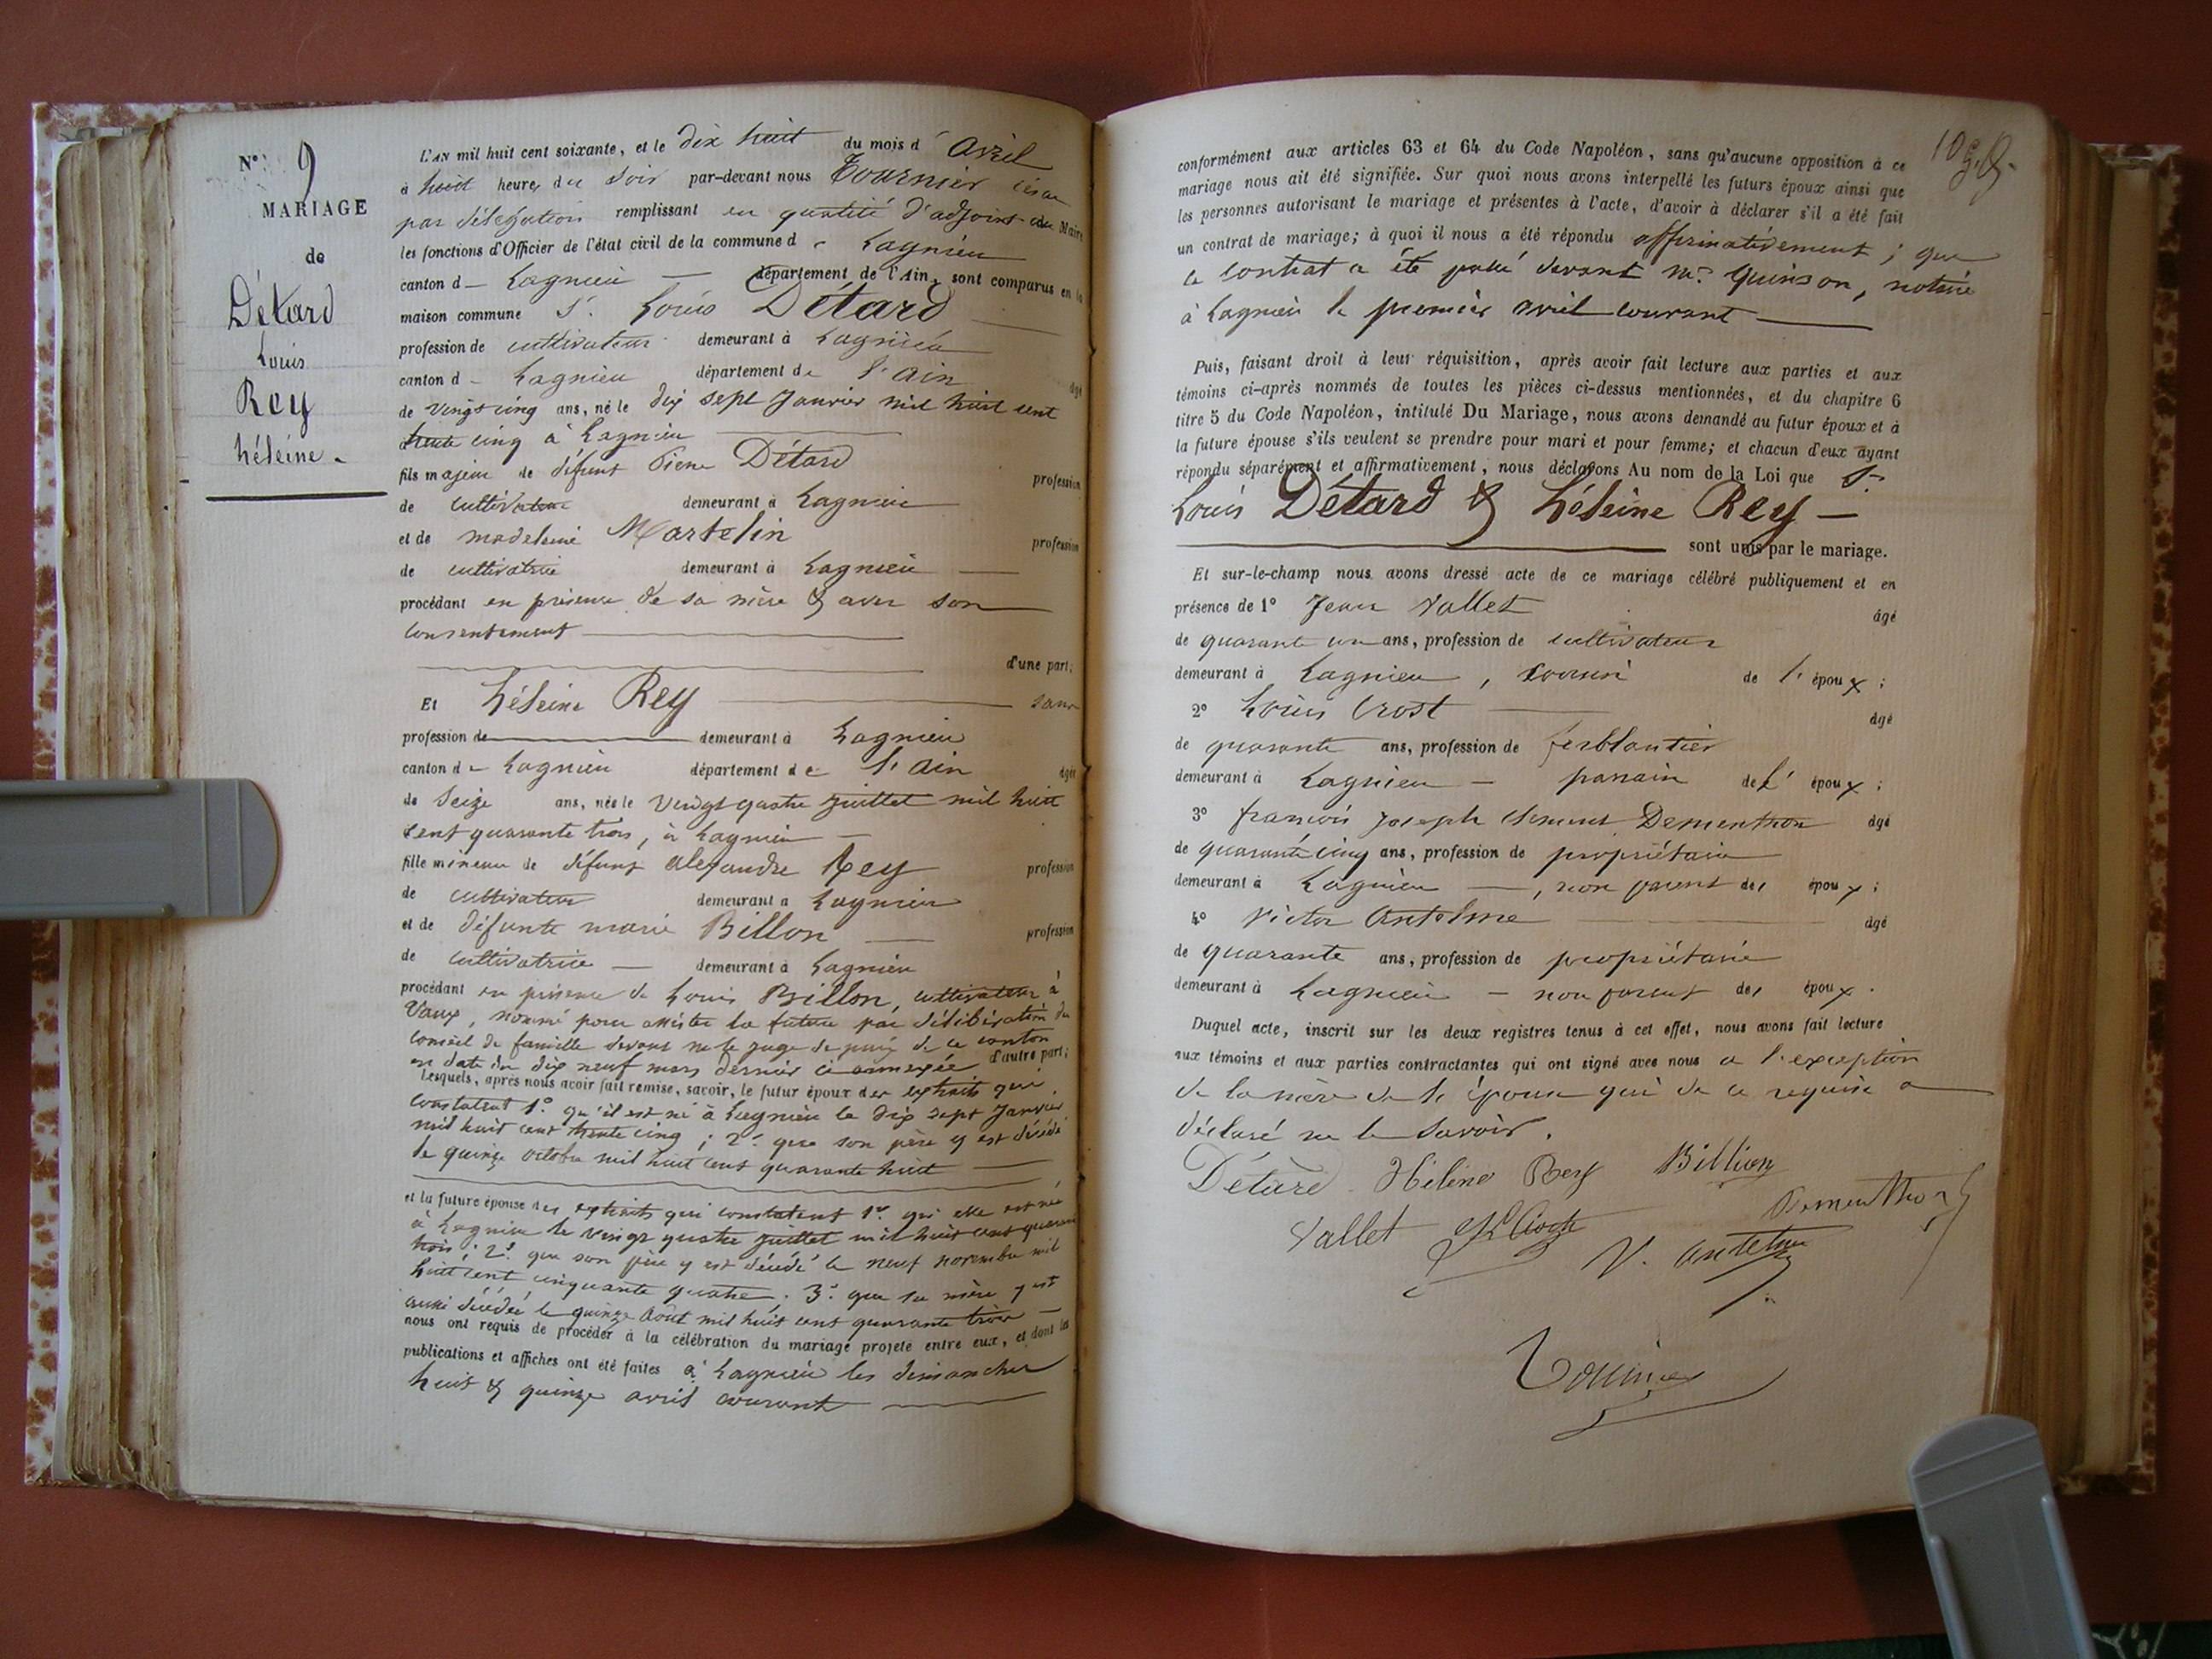 N° 9
MARIAGE
de
Détard
Louis
Rey
héleine.
L'AN mil huit cent soixante, et le dix huit du mois d' avril
à huit heures du soir par-devant nous Tournier césar
par délégation remplissant en qualité d'adjoint au Maire
les fonctions d'Officier de l'état civil de la commune d Lagnieu
canton d Lagnieu département de l'Ain, sont comparus en la
maison commune S.r Louis Détard
profession de cultivateur demeurant à Lagnieu
canton d Lagnieu département de l'ain âgé
de vingt cinq ans, né le dix sept Janvier mil huit cent
trente cinq à Lagnieu
fils majeur de défunt Pierre Détard profession
de cultivateur demeurant à Lagnieu
et de madeleine Martelin profession
de cultivatrice demeurant à Lagnieu
procédant en présence de sa mère & avec son
consentement
d'une part;
Et héleine Rey sans
profession de demeurant à Lagnieu
canton d Lagnieu département de l'ain âgée
de Seize ans, née le vingt quatre juillet mil huit
cent quarante trois, à Lagnieu
fille mineure de défunt alexandre Rey profession
de cultivateur demeurant à Lagnieu
et de défunte marie Billon profession
de cultivatrice demeurant à Lagnieu
procédant en présence de Louis Billon, cultivateur à
Vaux, nommé pour assister la future par délibération du
conseil de famille devant m.r le juge de paix de ce canton
en date du dix neuf mars dernier ci annexée d'autre part;
Lesquels, après nous avoir fait remise, savoir, le futur époux des extraits qui
constatent 1° qu'il est né à Lagnieu le dix sept Janvier
mil huit cent trente cinq; 2° que son père y est décédé
le quinze octobre mil huit cent quarante huit
et la future épouse des extraits qui constatent 1° qu'elle est née
à Lagnieu le vingt quatre juillet mil huit cent quarante
trois; 2° que son père y est décédé le neuf novembre mil
huit cent cinquante quatre. 3° que sa mère y est
aussi décédée le quinze août mil huit cent quarante trois
nous ont requis de procéder à la célébration du mariage projeté entre eux, et dont les
publications et affiches ont été faites à Lagnieu les dimanches
huit & quinze avril courant
conformément aux articles 63 et 64 du Code Napoléon, sans qu'aucune opposition à ce
mariage nous ait été signifiée. Sur quoi nous avons interpellé les futurs époux ainsi que
les personnes autorisant le mariage et présentes à l'acte, d'avoir à déclarer s'il a été fait
un contrat de mariage; à quoi il nous a été répondu affirmativement; que
le contrat a été passé devant M.e Quinson, notaire
à Lagnieu le premier avril courant
Puis, faisant droit à leur réquisition, après avoir fait lecture aux parties et aux
témoins ci-après nommés de toutes les pièces ci-dessus mentionnées, et du chapitre 6
titre 5 du Code Napoléon, intitulé Du Mariage, nous avons demandé au futur époux et à
la future épouse s'ils veulent se prendre pour mari et pour femme; et chacun d'eux ayant
répondu séparément et affirmativement, nous déclarons Au nom de la Loi que S.r
Louis Détard & héleine Rey
sont unis par le mariage.
Et sur-le-champ nous avons dressé acte de ce mariage célébré publiquement et en
présence de 1° Jean Vallet âgé
de quarante un ans, profession de cultivateur
demeurant à Lagnieu, cousin de l' époux;
2° Louis Crost âgé
de quarante ans, profession de ferblantier
demeurant à Lagnieu parrain de l' époux;
3° françois Joseph Clément Dementhon âgé
de quarante cinq ans, profession de propriétaire
demeurant à Lagnieu, non parent des époux;
4° Victor Antelme âgé
de quarante ans, profession de propriétaire
demeurant à Lagnieu non parent des époux.
Duquel acte, inscrit sur les deux registres tenus à cet effet, nous avons fait lecture
aux témoins et aux parties contractantes qui ont signé avec nous a l'exception
de la mère de l'époux qui de ce requise a
déclaré ne le savoir.
Détard Hélène Rey Billion
Vallet Dementhon
V. Antelme